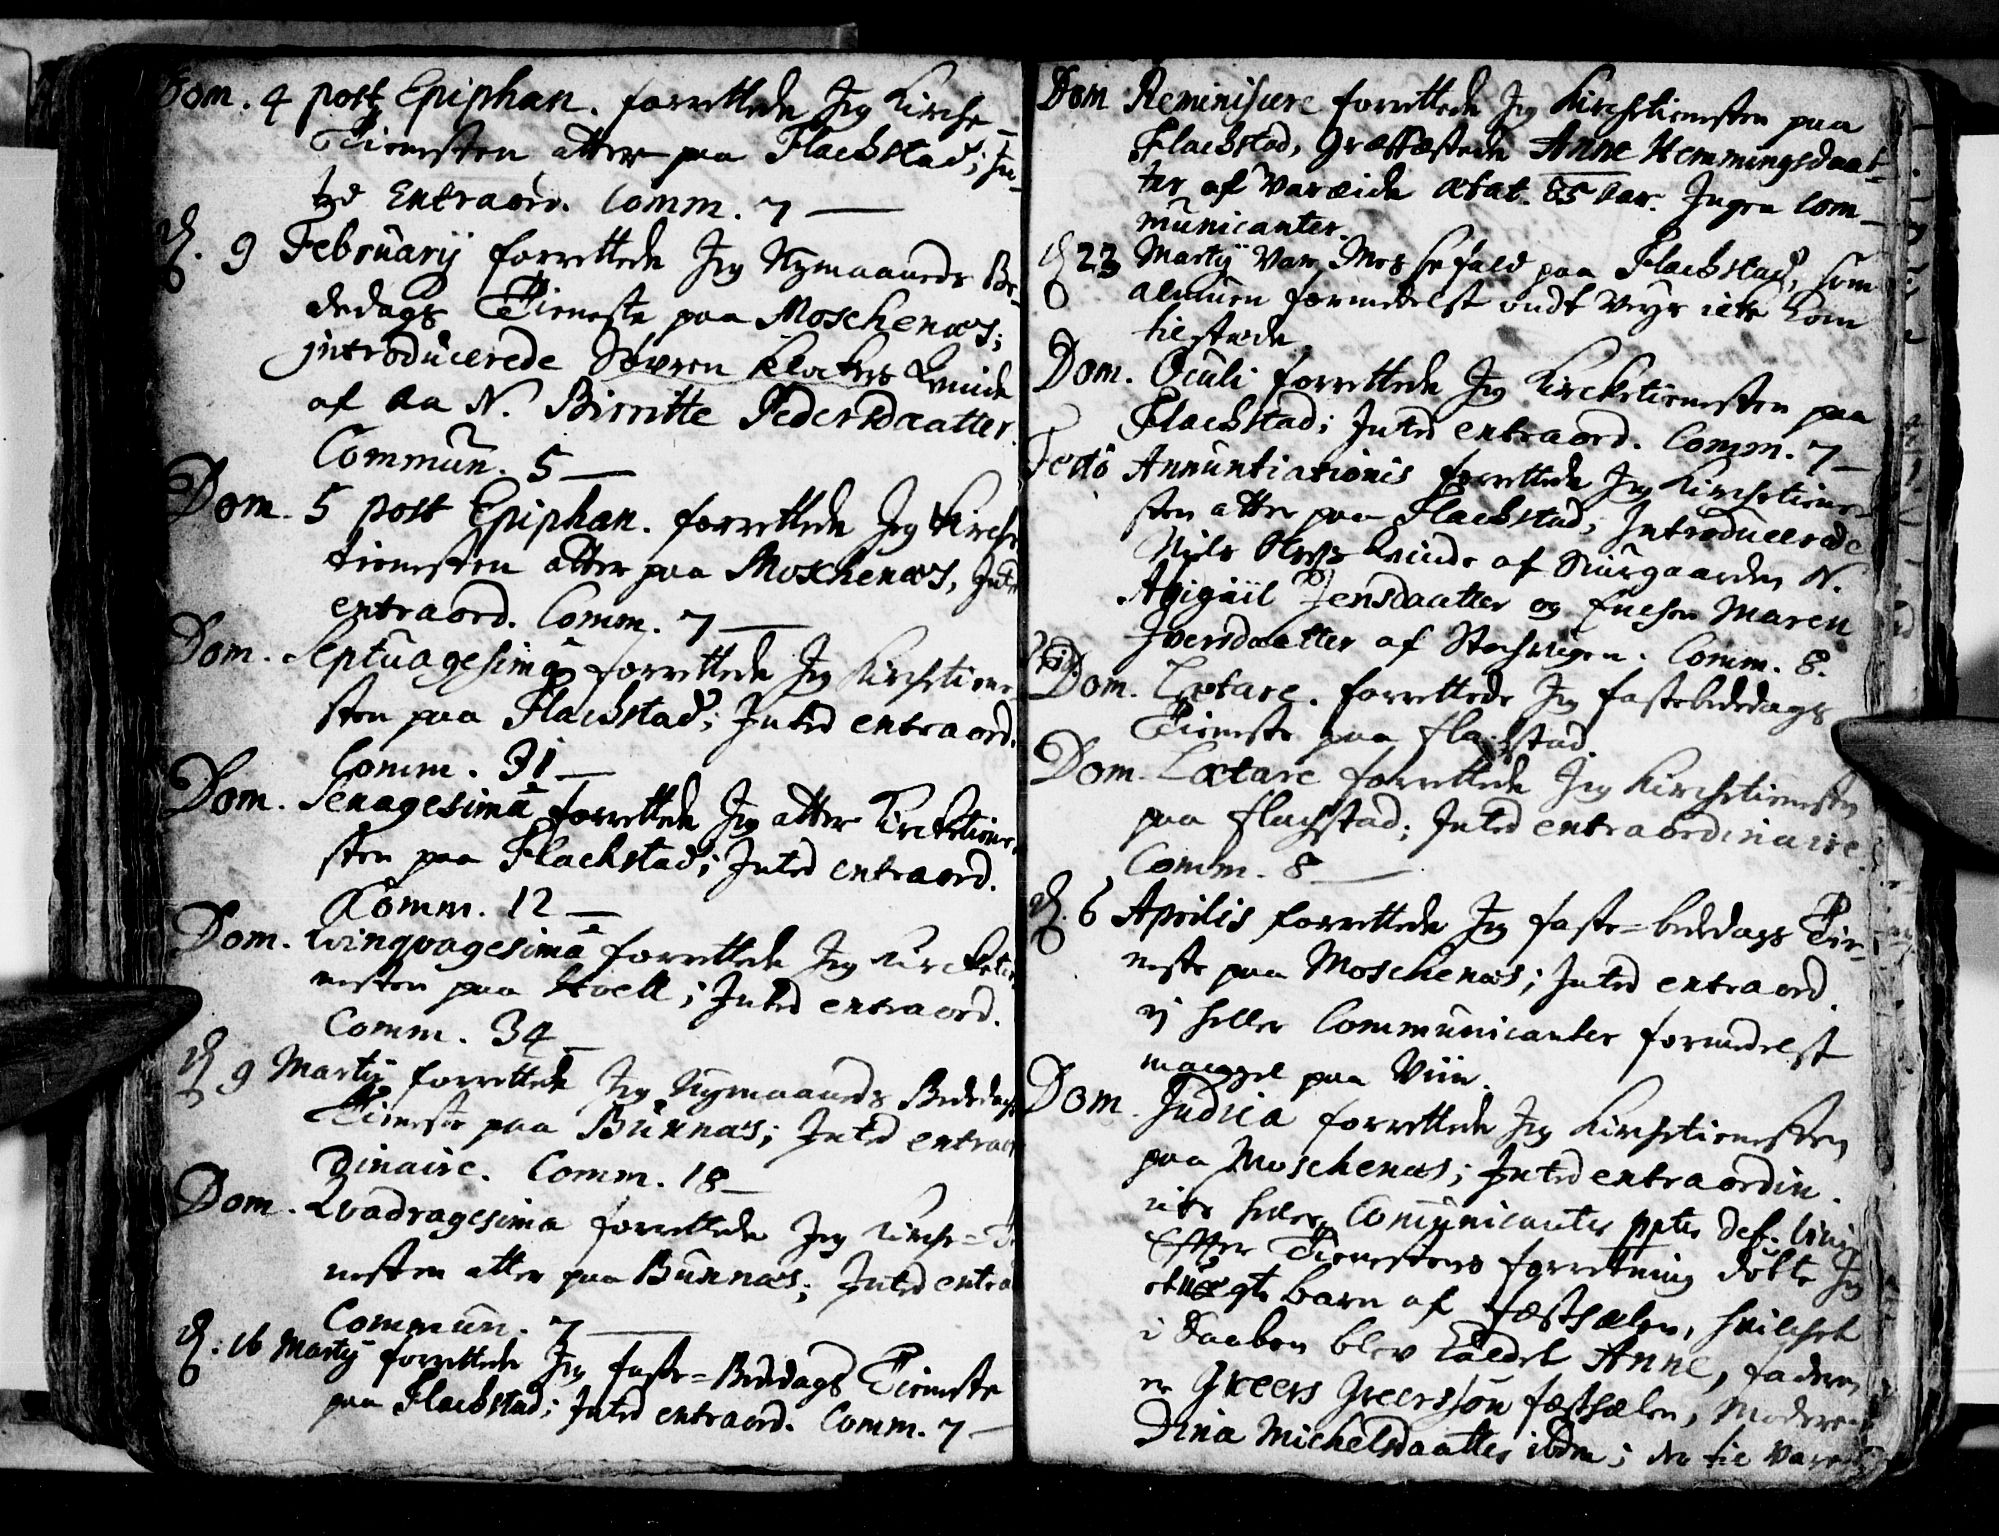 Dom. 4 post Epiphan. forrettede Jeg Kirche
Tienesten atter paa Flachstad; In-
tzd Extraord. Comm. 7 —
d. 9 February forrettede Jeg Nymaaneds Be-
dedags Tieneste paa Moschenæs;
introducerede Søvren Klockers Qvinde
af Aa N. Birritte Pedersdaatter.
Commun. 5 —
Dom. 5 post Epiphan. forrettede Jeg Kirche
tienesten atter paa Moschenæs, Intet
extraord. Comm. 7 —
Dom. Septuagesima forrettede Jeg Kirchetiene-
sten paa Flachstad; Inted extraord.
Comm. 31 —
Dom. Sexagesima forrettede Jeg atter Kircketiene-
sten paa Flackstad; Inted extraord.
Komm. 12 —
Dom. Qvinqvagesima forrettede Jeg Kircketie
nesten paa Hoell; Inted extraord.
Comm. 34 —
d. 9 Marty forrettede Jeg Nymaaneds Bededags
Tieneste paa Buxnæs; Inted extraor
dinaire. Comm. 18 —
Dom. Qvadragesima forrettede Jeg Kirche-Ti
nesten atter paa Buxnæs; Inted extra
Commun. 7 —
d. 16 Marty forrettede Jeg faste-Bededags Tieneste
paa Flachstad; Inted extraord. Comm. 7 —
Dom Reminiscere forrettede Jeg Kirchetienesten paa
Flachstad, Græffæstede Anne Hemmingsdaat-
ter af Vareide ætat. 85 Aar. Ingen Com-
municanter.
d 23 Marty Var Messefald paa Flachstad, som
almuen formedelst ondt Veyr icke kom
tilstæde.
Dom. Oculi forrettede Jeg Kircketienesten paa
Flachstad; Inted extraord. Comm. 7 —
Festo Annuntiationis forrettede Jeg Kirchetiene-
sten atter paa Flachstad; Introducerede
Niels Qvinde af Skiurgaarden N.
Abigaiil Jensdaatter og Enchen Maren
Iversdaatter af Stochvigen. Comm. 8.
Dom. Lætare. forrettede Jeg fastebededags
Tieneste paa Flachstad.
Dom. Lætare forrettede Jeg Kirchetienesten
paa Flachstad; Inted extraordinaire.
Comm. 8 —
d. 6 Aprilis forrettede Jeg faste=bededags Tie-
neste paa Moschenæs; Inted extraord.
ej heller Communicanter formedelst
mangel paa Viin.
Dom. Judica forrettede Jeg Kirchetienesten
paa Moschenæs; Inted extraordin.
icke heller Comunicanter ppter def. Vini
Efter Tienestens forretning døbte Jeg
et barn af Festhælen, hvilchet
i Daaben blev kaldet Anne, faderen
er Greers Greersøn festhælen, Moderen
Dina Michelsdaatter ibdm; der til Vare